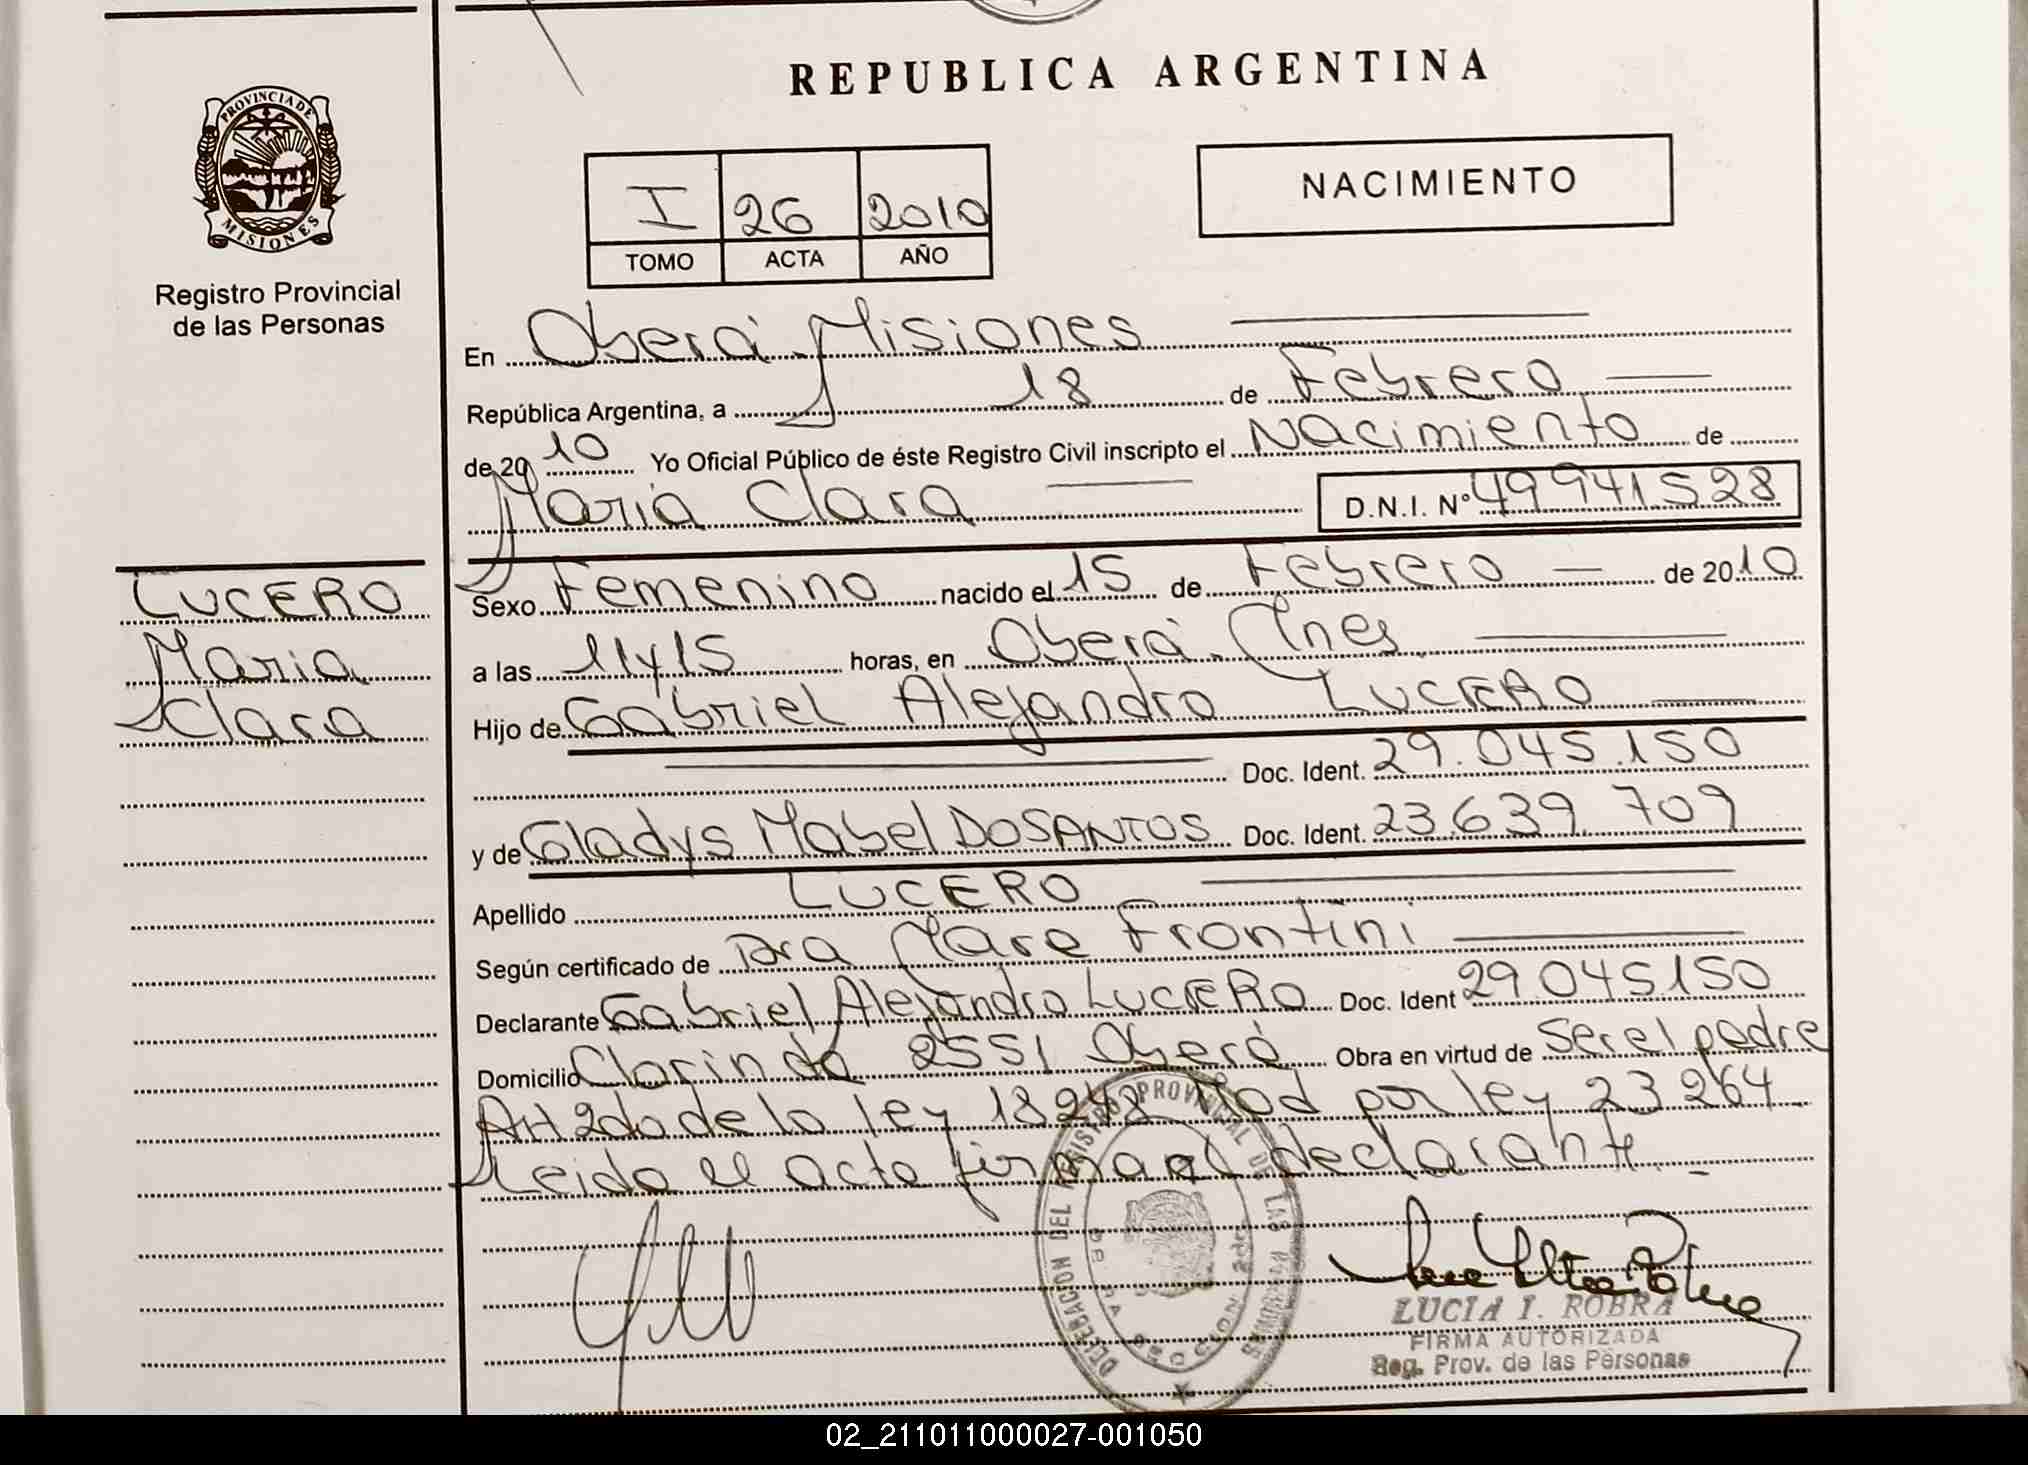 REPUBLICA ARGENTINA
PROVINCIA DE
MISIONES
Registro Provincial
de las Personas
I 26 2010
TOMO ACTA AÑO
NACIMIENTO
En Oberá Misiones
República Argentina, a 18 de Febrero
de 2010 Yo Oficial Público de éste Registro Civil inscripto el Nacimiento de
Maria Clara D.N.I. Nº 49941528
LUCERO
Maria
Clara
Sexo Femenino nacido el 15 de Febrero de 2010
a las 11y15 horas, en Oberá.
Hijo de Gabriel Alejandro LUCERO
Doc. Ident. 29.045.150
y de Gladys Mabel DOSANTOS Doc. Ident. 23.639.709
Apellido LUCERO
Según certificado de Dra Frontini
Declarante Gabriel Alejandro LUCERO Doc. Ident 29.045150
Domicilio Clorinda 2551 Oberá Obra en virtud de ser el padre
Art 2do de la ley 18248 Mod por ley 23264
Leida el acta firma el declarante.
DELEGACION DEL REGISTRO PROVINCIAL DE LAS PERSONAS
LUCIA I. ROBRA
FIRMA AUTORIZADA
Reg. Prov. de las Personas
02_211011000027-001050